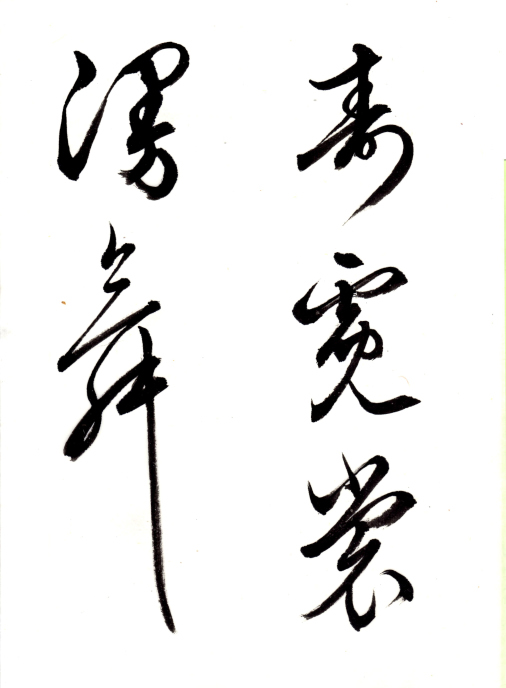 寿霓裳
漫舞